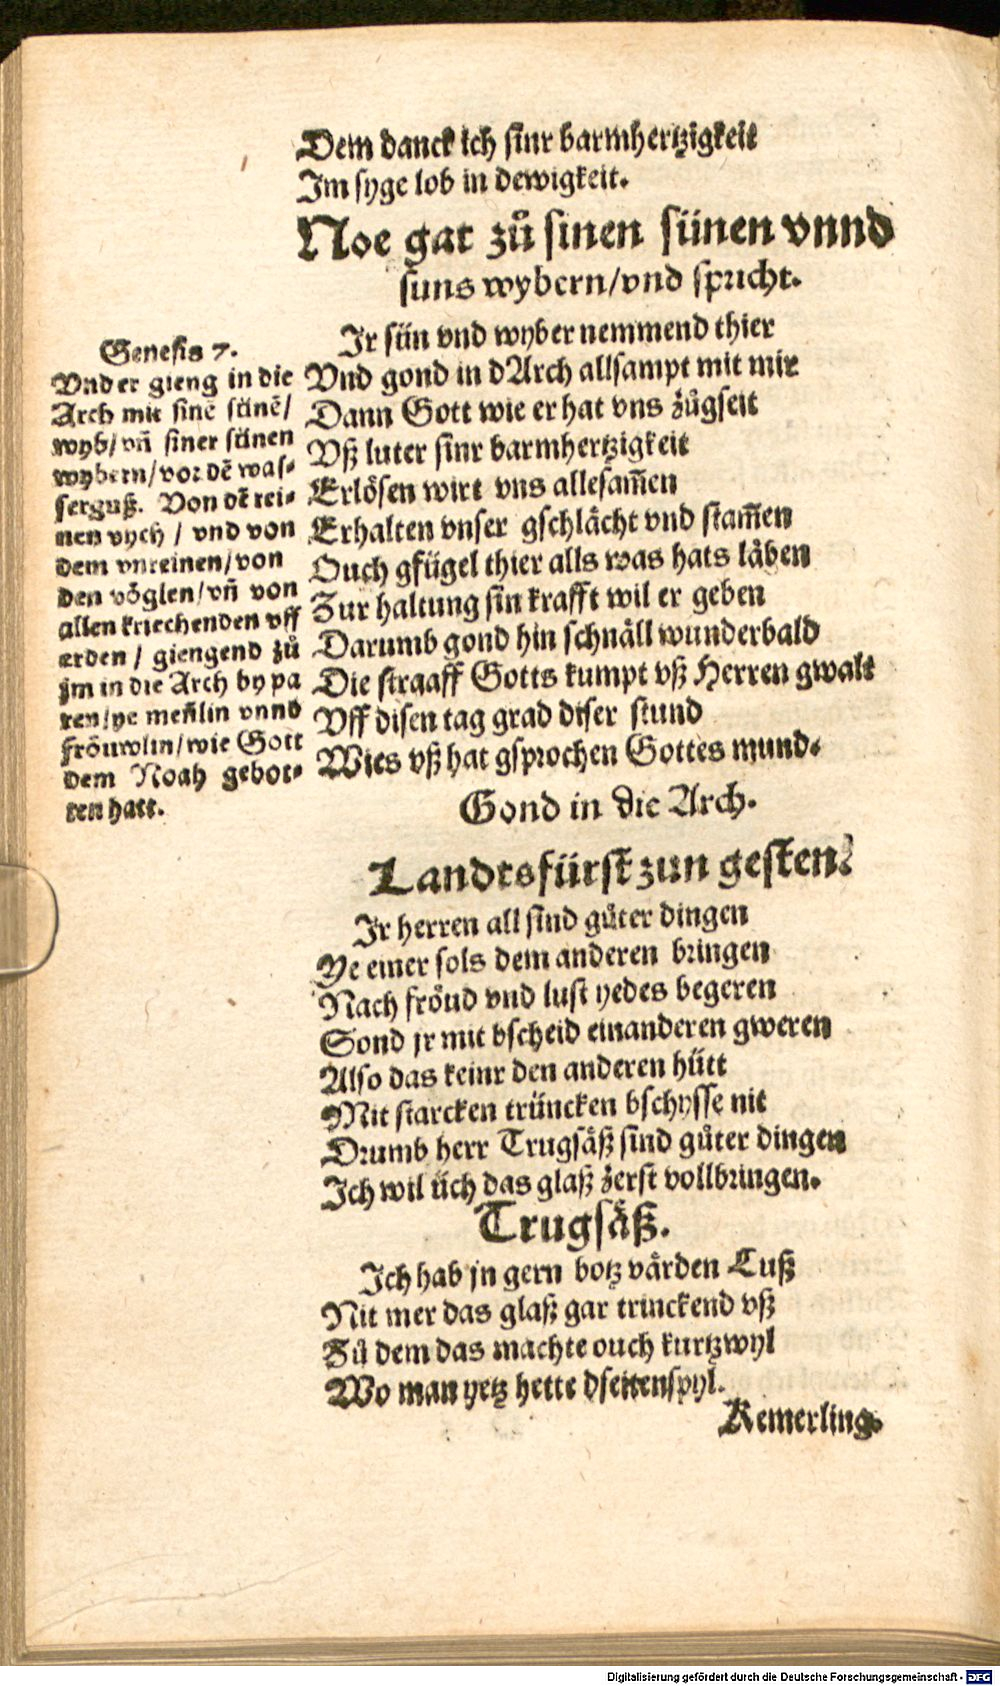 Dem danck ich sinr barmhertzigkeit
Im syge lob in dewigkeit.
Noe gat zů sinen sünen vnnd
suns wybern/vnd spricht.
Ir sün vnd wyber nemmend thier
Vnd gond in dArch allsampt mit mir
Dann Gott wie er hat vns zůgseit
Vß luter sinr barmhertzigkeit
Erlösen wirt vns allesam̃en
Erhalten vnser gschlächt vnd stam̃en
Ouch gfügel thier alls was hats läben
Zur haltung sin krafft wil er geben
Darumb gond hin schnäll wunderbald
Die straaff Gotts kumpt vß Herren gwalt
Vff disen tag grad diser stund
Wies vß hat gsprochen Gottes mund.
Gond in die Arch.
Genesis 7.
Vnd er gieng in die
Arch mit sinẽ sünẽ/
wyb/vñ siner sünen
wybern/vor dẽ was-
serguß. Von dẽ rei-
nen vych / vnd von
dem vnreinen/von
den vöglen/vñ von
allen kriechenden vff
erden / giengend zů
jm in die Arch by pa
ren/ye meñlin vnnd
fröuwlin/wie Gott
dem Noah gebot-
ten hatt.
Landtsfürst zun gesten.
Ir herren all sind gůter dingen
Ye einer sols dem anderen bringen
Nach fröud vnd lust yedes begeren
Sond jr mit bscheid einanderen gweren
Also das keinr den anderen hütt
Mit starcken trüncken bschysse nit
Drumb herr Trugsäß sind gůter dingen
Ich wil üch das glaß zerst vollbringen.
Trugsäß.
Ich hab jn gern botz värden Luß
Nit mer das glaß gar trinckend vß
Zů dem das machte ouch kurtzwyl
Wo man yetz hette dseitenspyl.
Kemerling.
Digitalisierung gefördert durch die Deutsche Forschungsgemeinschaft - DFG